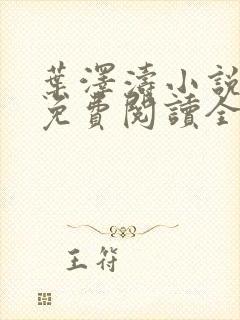 葉澤濤小說
免費閱讀全
王符